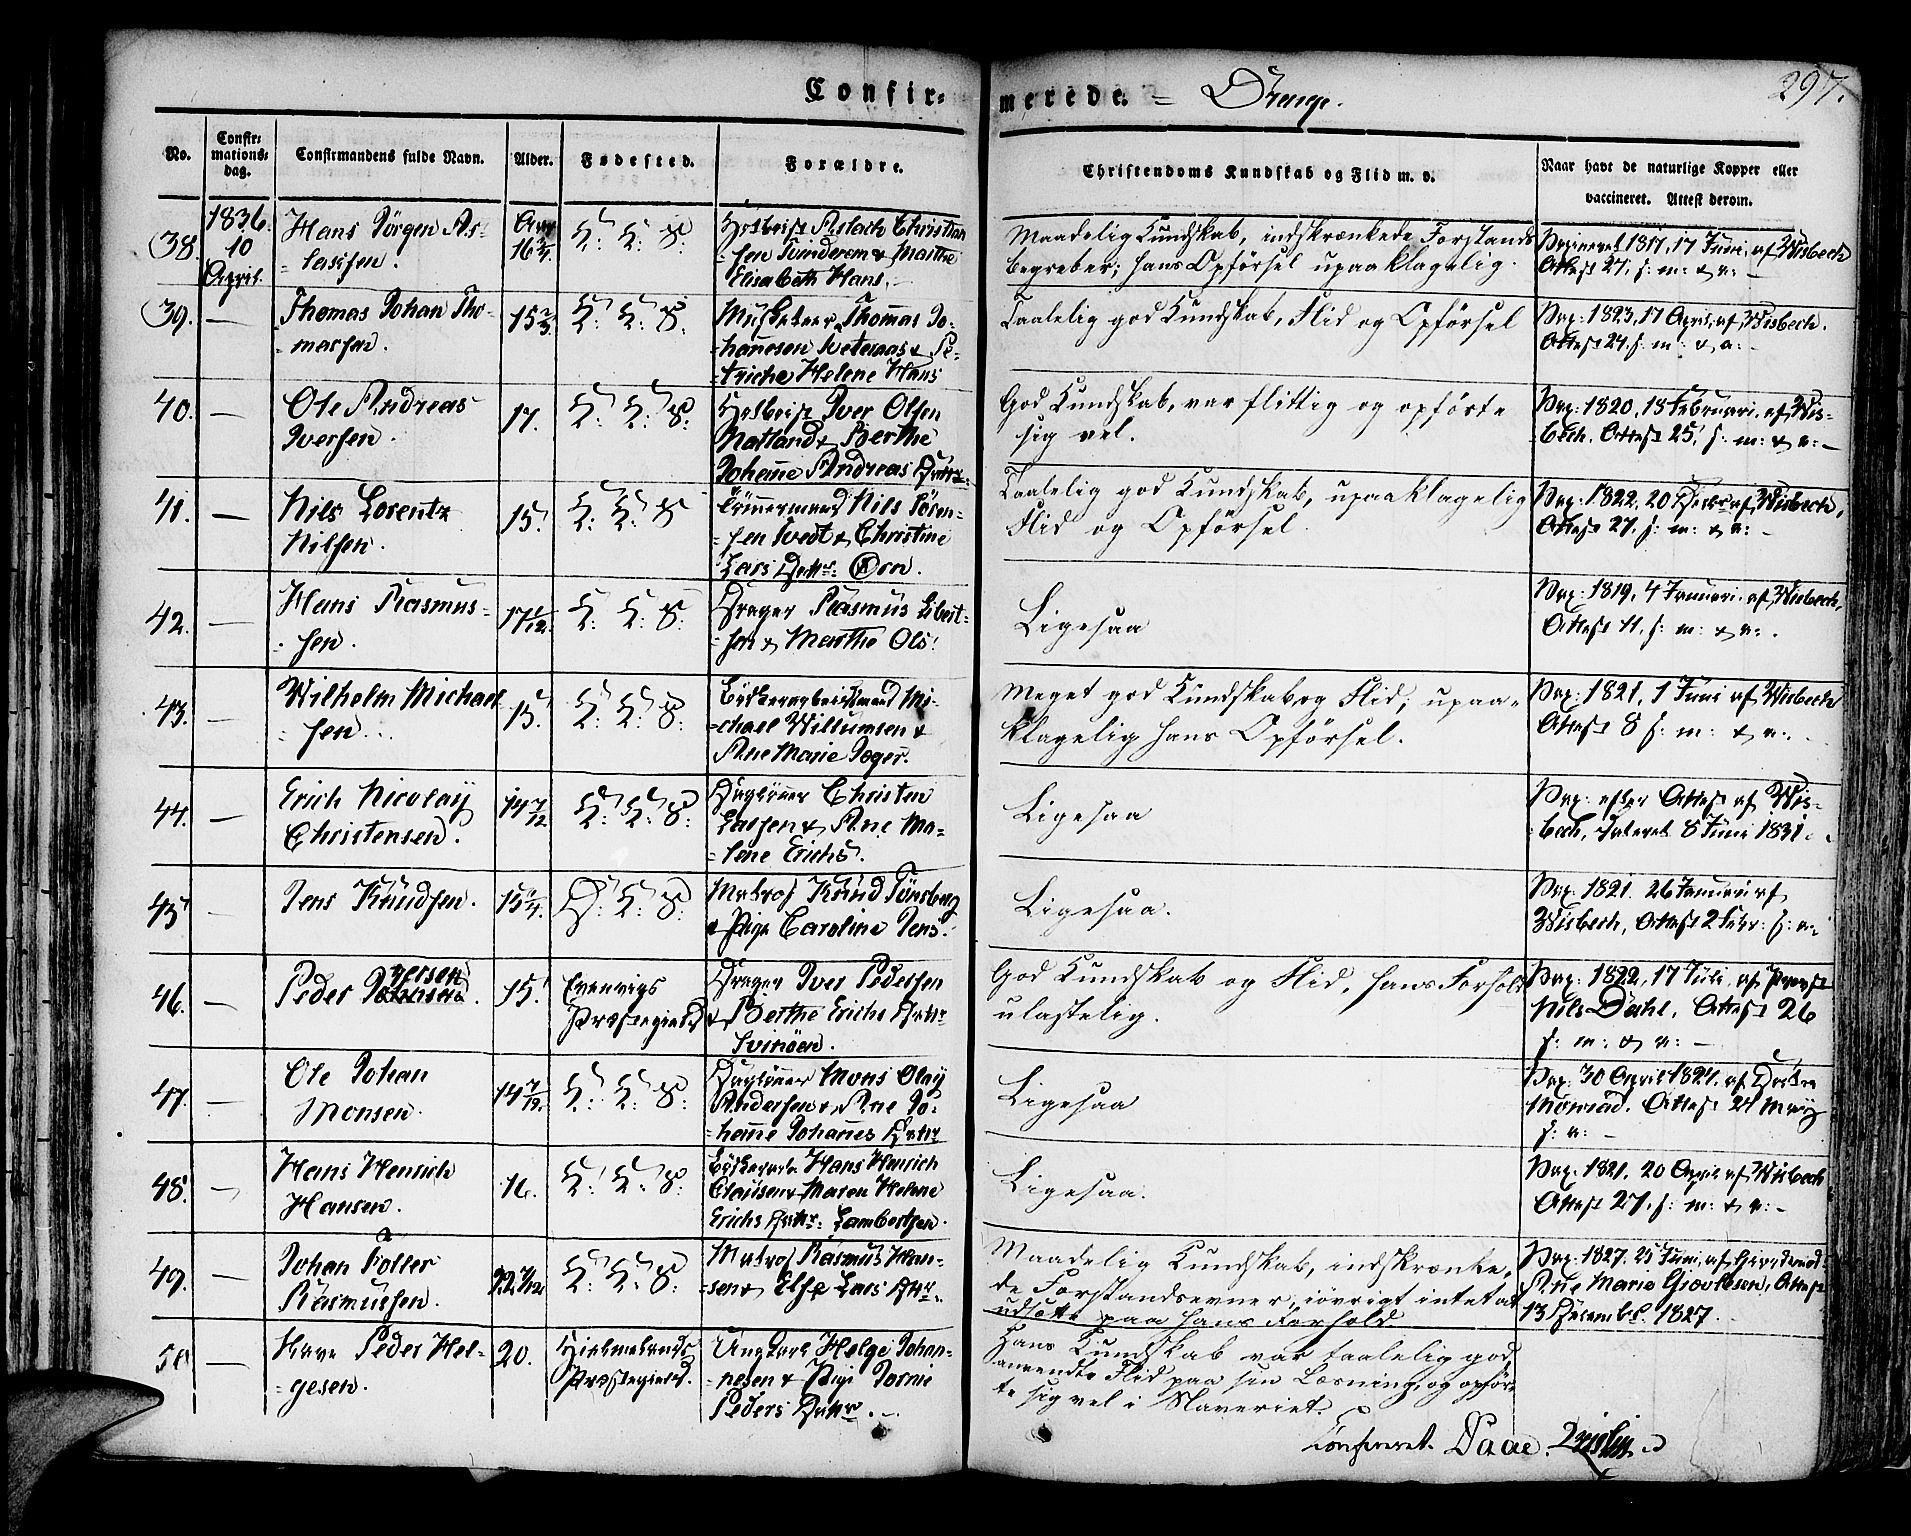 Confir-
merede. = Drenge.
297.
No.
Confir-
mations-
dag.
Confirmandens fulde Navn.
Alder.
Fødested.
Forældre.
Christendoms Kundskab og Flid m. v.
Naar havt de naturlige Kopper eller
vaccineret. Attest derom.
38.
1836.
10
April.
Hans Jörgen As-
-lachsen.
Aar
16 3/4
K: K: S:
Christian
-sen Tvinderem & Marthe
Elisabeth Hans.
Maadelig Kundskab, indskrænkede Forstands
begreber; hans Opförsel upaaklagelig.
1817, 17 Juni, af Wisbech
Attest 27. s: m: & a: -
39.
—
Thomas Johan Tho-
-massen.
15 2/3
K: K: S:
Musketeer Thomas Jo-
-hannesen & Pe-
-triche Helene Hans
Taalelig god Kundskab, Flid og Opförsel
Vax: 1823, 17 April, af Wisbech.
Attest 24. s: m: & a: -
40.
—
Ole Andreas
Iversen.
17.
K: K: S:
Iver Olsen
Natland & Berthe
Johanne Andreas Datter
God Kundskab, var flittig og opförte
sig vel.
Vax: 1820, 18 Februari, af Wis-
-bech. Attest 25, s: m: & a: -
41.
—
Nils Lorentz
Nilsen.
15.
K: K: S:
Tömmermand Nils Sören-
-sen Tvedt & Christine
Lars Dattr: Örn.
Taalelig god Kundskab, upaaklagelig
Flid og Opförsel.
Vax: 1822, 20 Decbr af Wisbech,
Attest 27. s: m: & a: -
42.
—
Hans Rasmus-
-sen.
17 1/12.
K: K: S:
Drager Rasmus Libert-
-sen & Marthe Ols.
Ligesaa
Vax: 1819, 4 Januari. af Wisbech,
Attest 11. s: m: & a: .
43.
—
Wilhelm Michael
-sen.
15.
K: K: S:
Mi-
-chael Willumsen &
Ane Marie Joger.
Meget god Kundskab og Flid, upaa-
klagelig hans Opförsel.
Vax: 1821, 1 Juni af Wisbech
Attest 8 s: m: & a: .
44.
—
Erich Nicolay
Christensen.
14 7/12
K: K: S:
Daglönner Christen
Larsen & Ane Ma-
-lene Erichs.
Ligesaa
Vax: efter Attest af Wis-
-bech, dateret 8 Juni 1831.
45
—
Jens Knudsen.
15 1/4.
D: K: S:
Matros Knud Tönsberg
& Pige Caroline Jens.
Ligesaa.
Vax. 1821. 26 Januari af
Wisbech, Attest 2 Febr: s: a:
46.
—
Peder Iversen.
15.
Evenvigs
Præstegield
Drager Iver Pedersen
& Berthe Erichs Dattr
Svinöen.
God Kundskab og Flid, hans Forhold
ulastelig.
Vax: 1822, 17 Juli, af Provst
Nils Dahl, Attest 26
s: m: & a: -
47.
—
Ole Johan
Monsen.
14 7/12.
K: K: S:
Daglönner Mons Olay
Andersen & Ane Jo-
-hanne Johannes Dattr
Ligesaa
Vax: 30 April 1824, af Doctor
Monrad. Attest 24 May
s: a: -
48.
—
Hans Henrich
Hansen.
16.
K: K: S:
Hans Henrich
Clausen & Maren Helene
Erichs Dattr: Lambertsen.
Ligesaa.
Vax: 1821, 20 April af Wisbech
Attest 27. s: m: & a: -
49.
—
Johan Foller
Rasmussen.
22 7/12
K: K: S:
Matros Rasmus Han-
-sen & Else Lars Dttr.
Maadelig Kundskab, indskrænke-
de Forstandsevner, iövrigt intet at
udsætte paa hans Forhold
Vax: 1827. 25 Juni, af
Ane Marie Giovlesen, Attest
13 December. 1827.
50
—
Have Peder Hel-
-gesen.
20.
Hielmelands
Præstegield.
Ungkarl Helge Johan-
-nesen & Pige Tornie
Peders Dattr.
Hans Kundskab var taalelig god,
anvendte Flid paa sin Læsning, og opför-
te sig vel i Slaveriet.
Confereret. Daae.